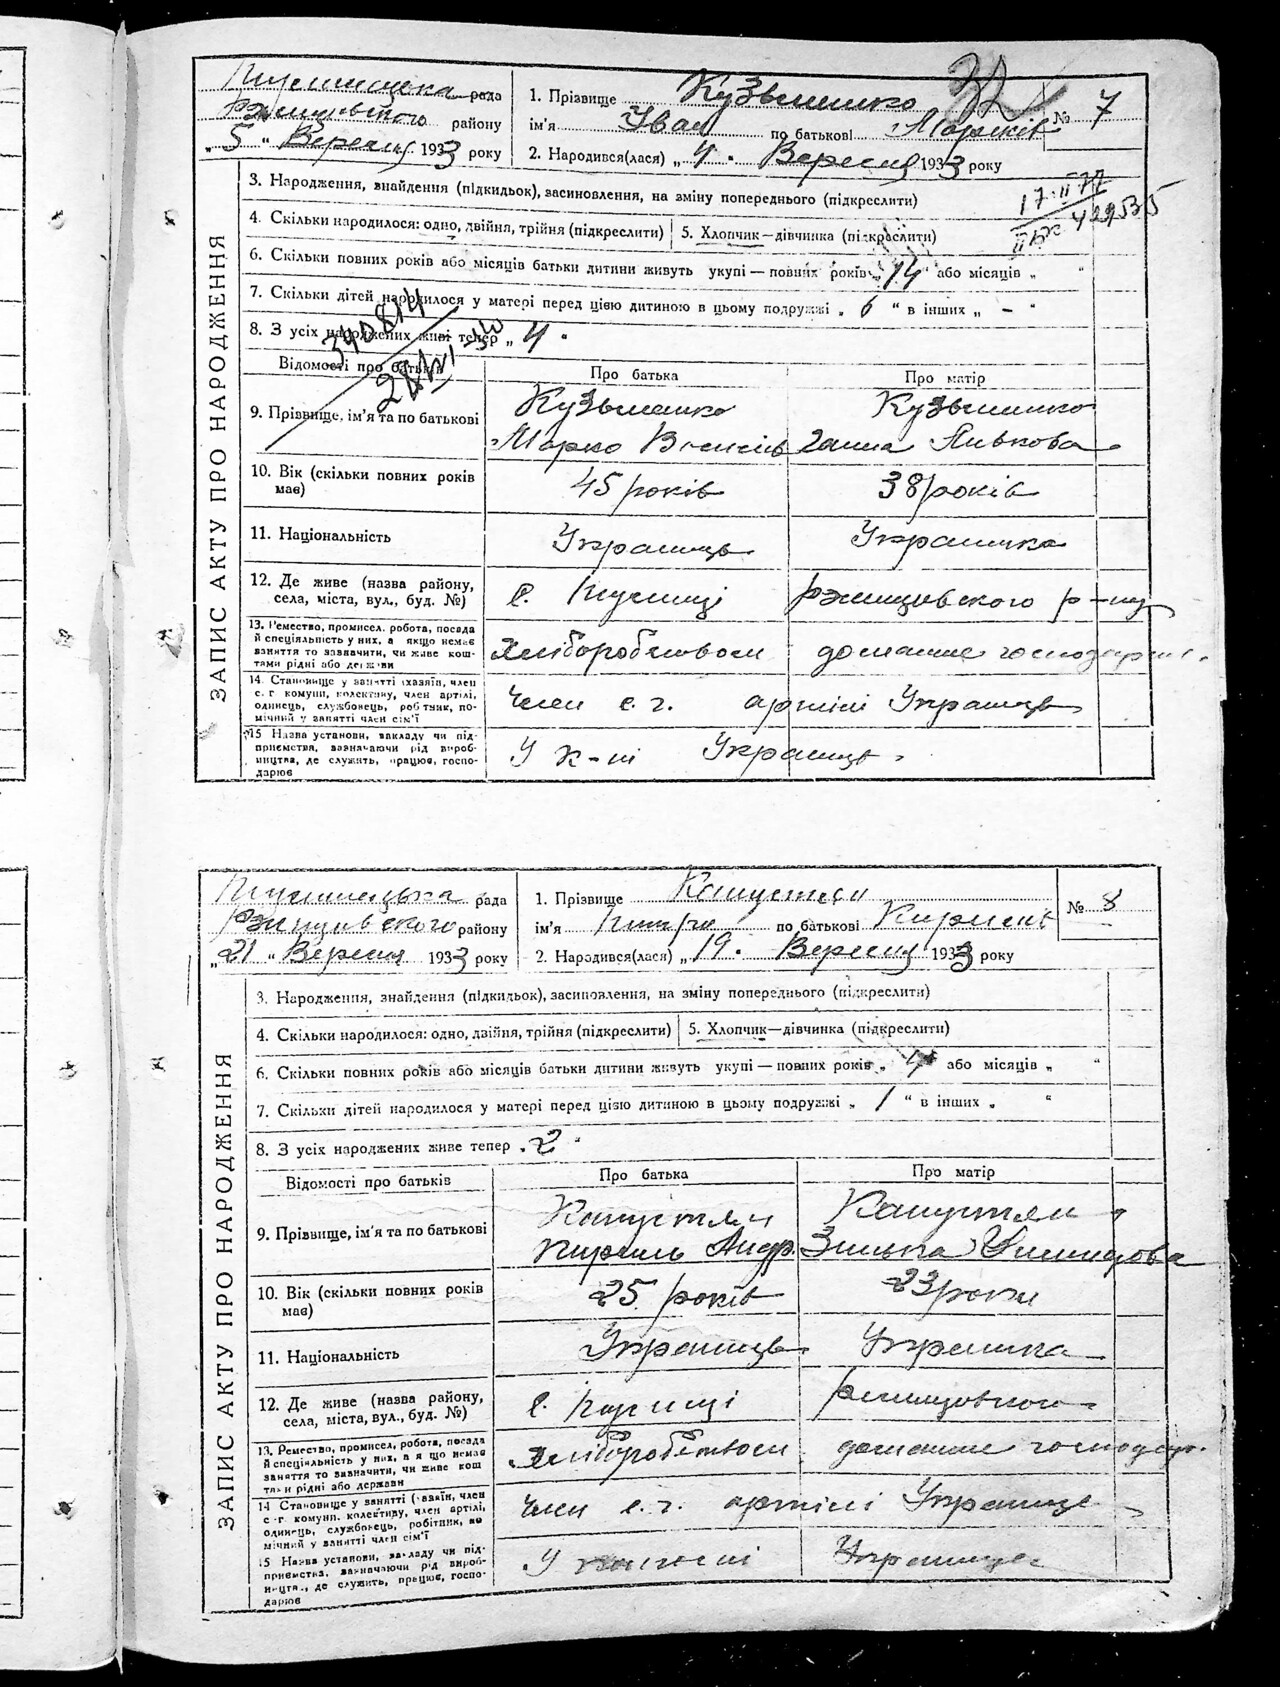 рада
Ржищівського району
„ 5 “ Вересня 1933 року
1. Прізвище Кузьменко
ім'я Іван по батькові Марків
№ 7
2. Народився(лася) „ 4 . Вересня 1933 року
3. Народження, знайдення (підкидьок), засиновлення, на зміну попереднього (підкреслити)
17.II 77
4. Скільки народилося: одно, двійня, трійня (підкреслити)
5. Хлопчик—дівчинка (підкреслити)
6. Скільки повних років або місяців батьки дитини живуть укупі — повних років „ 14 “ або місяців „ “
7. Скільки дітей народилося у матері перед цією дитиною в цьому подружжі „ 6 “ в інших „ – “
8. З усіх народжених живе тепер „ 4 .
340814
ЗАПИС АКТУ ПРО НАРОДЖЕННЯ
Відомості про батьків
Про батька
Про матір
9. Прізвище, ім'я та по батькові
Кузьменко
Марко
Кузьменко
Ганна
10. Вік (скільки повних років має)
45 років
38 років
11. Національність
Українець
Українка
12. Де живе (назва району,
села, міста, вул., буд. №)
с.
Ржищівського р-ну
13. Ремество, промисел, робота, посада
й спеціяльність у них, а якщо немає
заняття то зазначити, чи живе кош-
тами рідні або держави
Хліборобством
домашнє господар.
14. Становище у занятті (хазяїн, член
с.-г. комуни, колективу, член артілі,
одинець, службовець, робітник, по-
мічний у занятті член сім'ї
Член с. г. артілі Українець
15 Назва установи, закладу чи під-
приємства, зазначаючи рід вироб-
ництва, де служить, працює, госпо-
дарює
У к-пі Українець
рада
Ржищівського району
„ 21 “ Вересня 1933 року
1. Прізвище Капустян
ім'я Петро по батькові Кирилів
№ 8
2. Народився(лася) „ 19 . Вересня 1933 року
3. Народження, знайдення (підкидьок), засиновлення, на зміну попереднього (підкреслити)
4. Скільки народилося: одно, двійня, трійня (підкреслити)
5. Хлопчик—дівчинка (підкреслити)
6. Скільки повних років або місяців батьки дитини живуть укупі — повних років „ 4 “ або місяців „ “
7. Скільки дітей народилося у матері перед цією дитиною в цьому подружжі „ 1 “ в інших „ “
8. З усіх народжених живе тепер „ 2 “
ЗАПИС АКТУ ПРО НАРОДЖЕННЯ
Відомості про батьків
Про батька
Про матір
9. Прізвище, ім'я та по батькові
Капустян
Кирило Андр.
Капустян
Зінька
10. Вік (скільки повних років
має)
25 років
23 роки
11. Національність
Українець
Українка
12. Де живе (назва району,
села, міста, вул., буд. №)
с.
Ржищівського
13. Ремество, промисел, робота, посада
й спеціяльність у них, а якщо немає
заняття то зазначити, чи живе кош
тами рідні або держави
Хліборобством
домашнє господар.
14 Становище у занятті (хазяїн, член
с.-г комуни, колективу, член артілі,
одинець, службовець, робітник, по
мічний у занятті член сім'ї
Член с. г. артілі Українець
15 Назва установи, закладу чи під-
приємства, зазначаючи рід вироб-
ництва, де служить, працює, госпо-
дарює
У колгоспі Українець